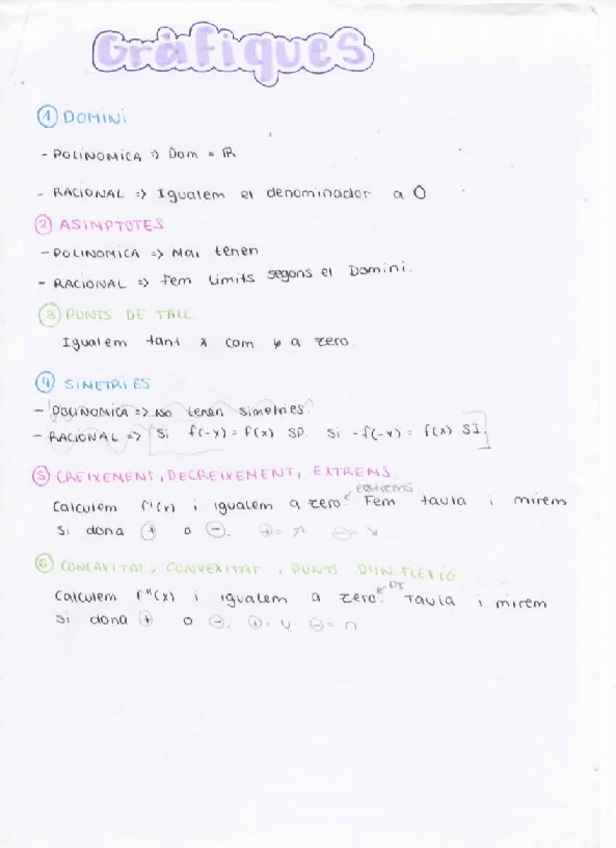 Gràfiques
① DOMINI
- POLINOMICA => Dom = ℝ
- RACIONAL => Igualem el denominador a 0
② ASINPTOTES
- POLINOMICA => Mai tenen
- RACIONAL => Fem limits segons el Domini.
③ PUNTS DE TALL
Igualem tant x com y a zero.
④ SIMETRIES
- POLINOMICA => NO tenen simetries.
- RACIONAL => [Si f(-x) = f(x) SP. Si -f(-x) = f(x) SI.]
⑤ CREIXEMENT, DECREIXEMENT, EXTREMS.
extrems
Calculem f'(x) i igualem a zero. Fem taula i mirem
si dona ⊕ o ⊖. ⊕= ↗ ⊖= ↘
⑥ CONCAVITAT, CONVEXITAT, PUNTS D'INFLEXIÓ
PI
Calculem f"(x) i igualem a zero. Taula i mirem
si dona ⊕ o ⊖. ⊕= ∪ ⊖= ∩